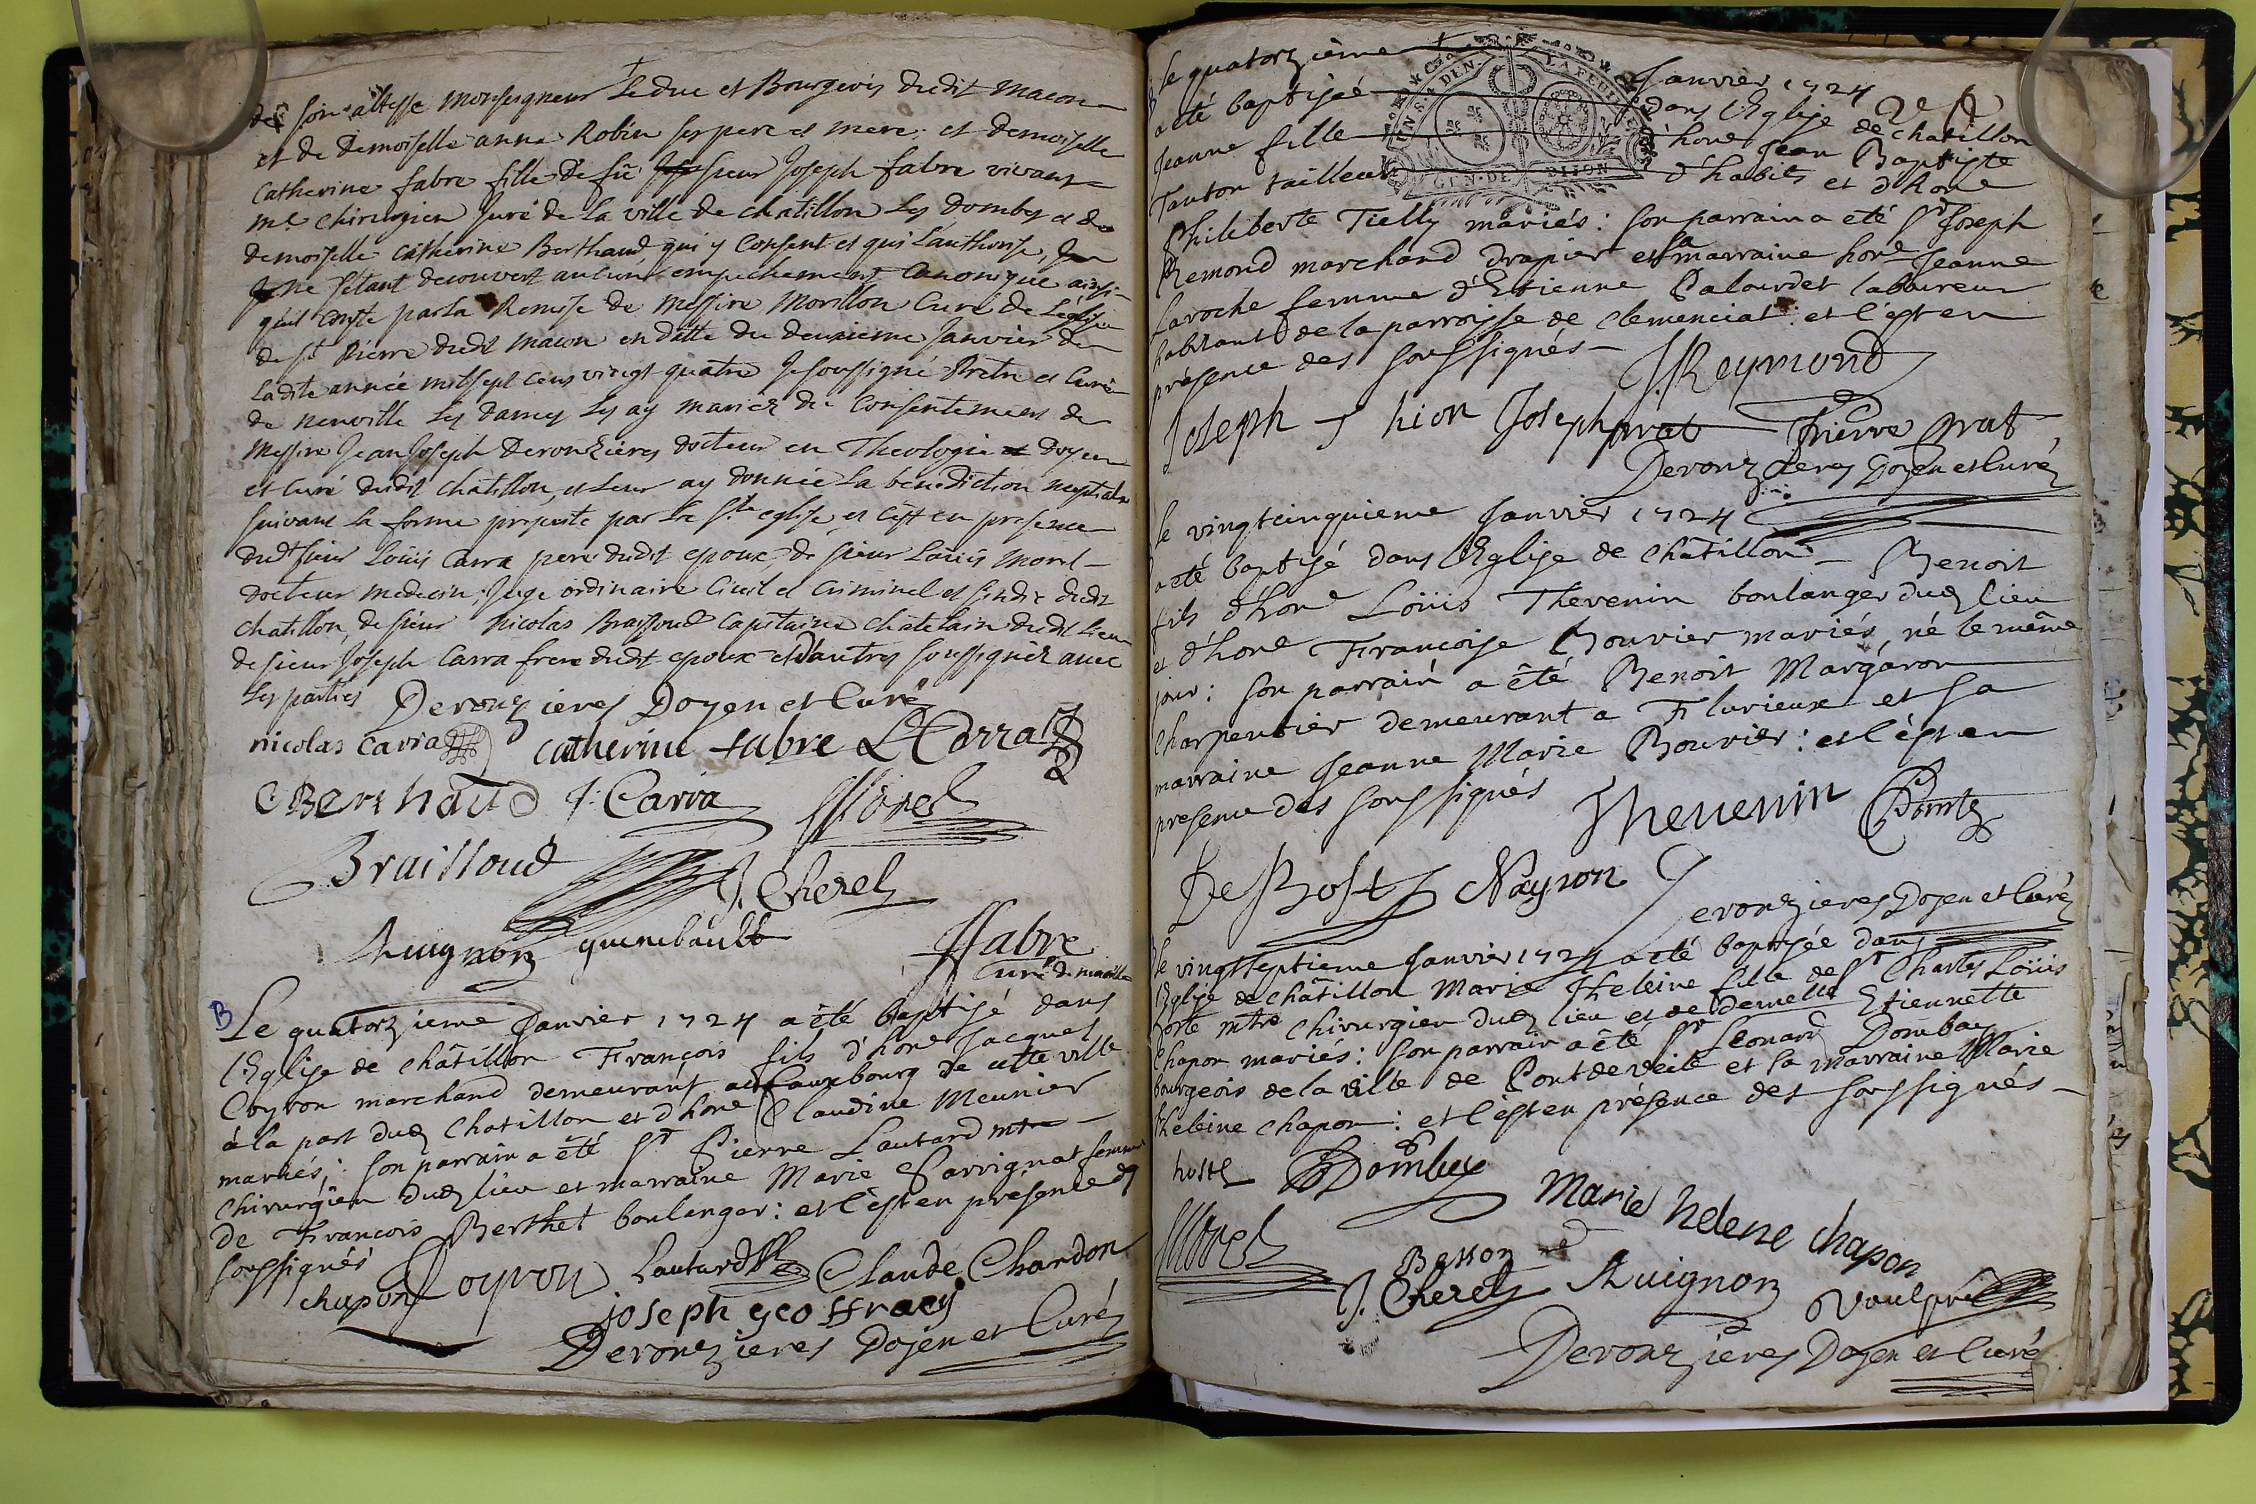 de son altesse Monseigneur Le duc et Bourgeois dudit macon
et de demoiselle anne Robin ses pere et mere, et demoiselle
Catherine fabre fille de fû sieur Joseph fabre vivant
me. Chirurgien Juré de la ville de chatillon Les dombes et de
demoiselle Catherine Berthaud, qui y Consent et qui L'authorise,
ne s'étant decouvert aucun empechement Canonique ainsi
qu'il Conste par la Remise de Messire Morillon Curé de L'eglise
de st. Pierre dudit macon en datte du deuxieme Janvier de
Ladite année mil sept cens vingt quatre Je soussigné Pretre et Curé
de neuville Les dames Les ay mariez du Consentement de
Messire Jean Joseph Deronzieres docteur en Theologie doyen
et Curé dudit Châtillon, et Leur ay donnée la bénédiction nuptiale
suivant la forme prescrite par la Ste. eglise et c'est en presence
dudt sieur Loüis Carra pere dudit epoux, de sieur Loüis Morel
docteur medecin, Juge ordinaire Civil et Criminel et sindic dudit
chatillon, de sieur Nicolas Braissoud Capitaine chatelain dudit Lieu
de sieur Joseph Carra frere dudit epoux et d'autres soussignez avec
Les parties Deronzieres Doyen et Curé
nicolas Carra catherine fabre L Carra
C Berthaud J. Carra Morel
Braissoud J. Cherel
Auignon guenebault ffabre
Curé de neuville
B Le quatorzieme Janvier 1724 a été baptisé dans
l'Eglise de châtillon François fils d'hone Jacques
Coyron marchand demeurant au fauxbourg de cette ville
à la part dud Chatillon et d'hone Claudine Meunier
mariés; son parrain a été Sr Pierre Lautard mtre
Chirurgien dud lieu et marraine Marie Parrignat femme
de François Berthet boulanger: et c'est en presence des
soussignés
chapon Coyron Lautard Claude Chardon
joseph geoffracy
Deronzieres Doyen et Curé
B Le quatorzième Janvier 1724
a été baptisée dans l'Eglise de chatillon
Jeanne fille d'hone Jean Baptiste
Tanton tailleur d'habits et d'hone
GEN. DE DIJON
Philiberte Tielly mariés: son parrain a été Sr Joseph
Remond marchand drapier et sa marraine hone Jeanne
Laroche femme d'Etienne Palourdet laboureur
habitant de la parroisse de Clemenciat: et c'est en
présence des soussignés
J. Reymond
Joseph Joseph prat Pierre prat
Deronzieres Doyen et Curé
Le vingtcinquieme Janvier 1724
a été baptisé dans l'Eglise de châtillon Benoit
fils d'hone Loüis Thevenin boulanger dud lieu
et d'hone Françoise Bouvier mariés, né le même
jour: son parrain a été Benoit Margaron
Charpentier demeurant a Flurieux et sa
marraine Jeanne Marie Bouvier: et c'est en
presence des soussignés Thevenin
De Bost Nayron
Deronzieres Doyen et Curé
Le vingtseptieme Janvier 1724 a été baptisée dans
l'Eglise de châtillon Marie Heleine fille de Sr Charles Loüis
hoste mtre Chirurgien dud lieu et de demelle Etiennette
Chapon mariés: son parrain a été Sr Leonard Dombey
bourgeois de la ville de Pont de veile et sa marraine Marie
Heleine chapon: et c'est en présence des soussignés
hoste Dombey
Marie helene chapon
Morel Besson
J. Cherel Auignon Voulpré
Deronzieres Doyen et Curé